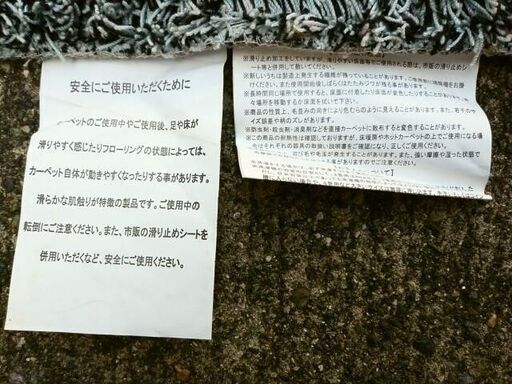 安全にご使用いただくために
ーペットのご使用中やご使用後、足や床が
滑りやすく感じたりフローリングの状態によっては、
カーペット自体が動きやすくなったりする事があります。
滑らかな肌触りが特徴の製品です。ご使用中の
転倒にご注意ください。また、市販の滑り止めシートを
併用いただくなど、安全にご使用ください。
※滑り止め加工をしていますが、滑りやすい床面等でご使用される際は、市販の滑り止めシ
ート等と併用して敷いてください。
※新しいうちは製造上発生する繊維が残っていることがあります。
行ください。また使用開始後しばらくはたたみジワが残る事があります。
※長時間同じ場所で使用すると、床面に付着したり床面が変色したりすることがあります。
な場所を移動するか床面を拭いて下さい。
※商品の性質上、毛並みの向きにより色むらのように見えることがあります。また、若干のサ
イズ誤差や柄のズレがあります。
※防虫剤・殺虫剤・消臭剤などを直接カーペットに散布すると変色することがあります。
※この商品の耐熱性は確認しておりますが、床暖房やホットカーペットの上でご使用になる場
合はそれぞれの器具の取扱説明書をご確認になり、正しくご使用ください。
遊び毛や毛玉が発生することがあります。また、強い摩擦や湿った状態で
事がありますのでご注意ください。